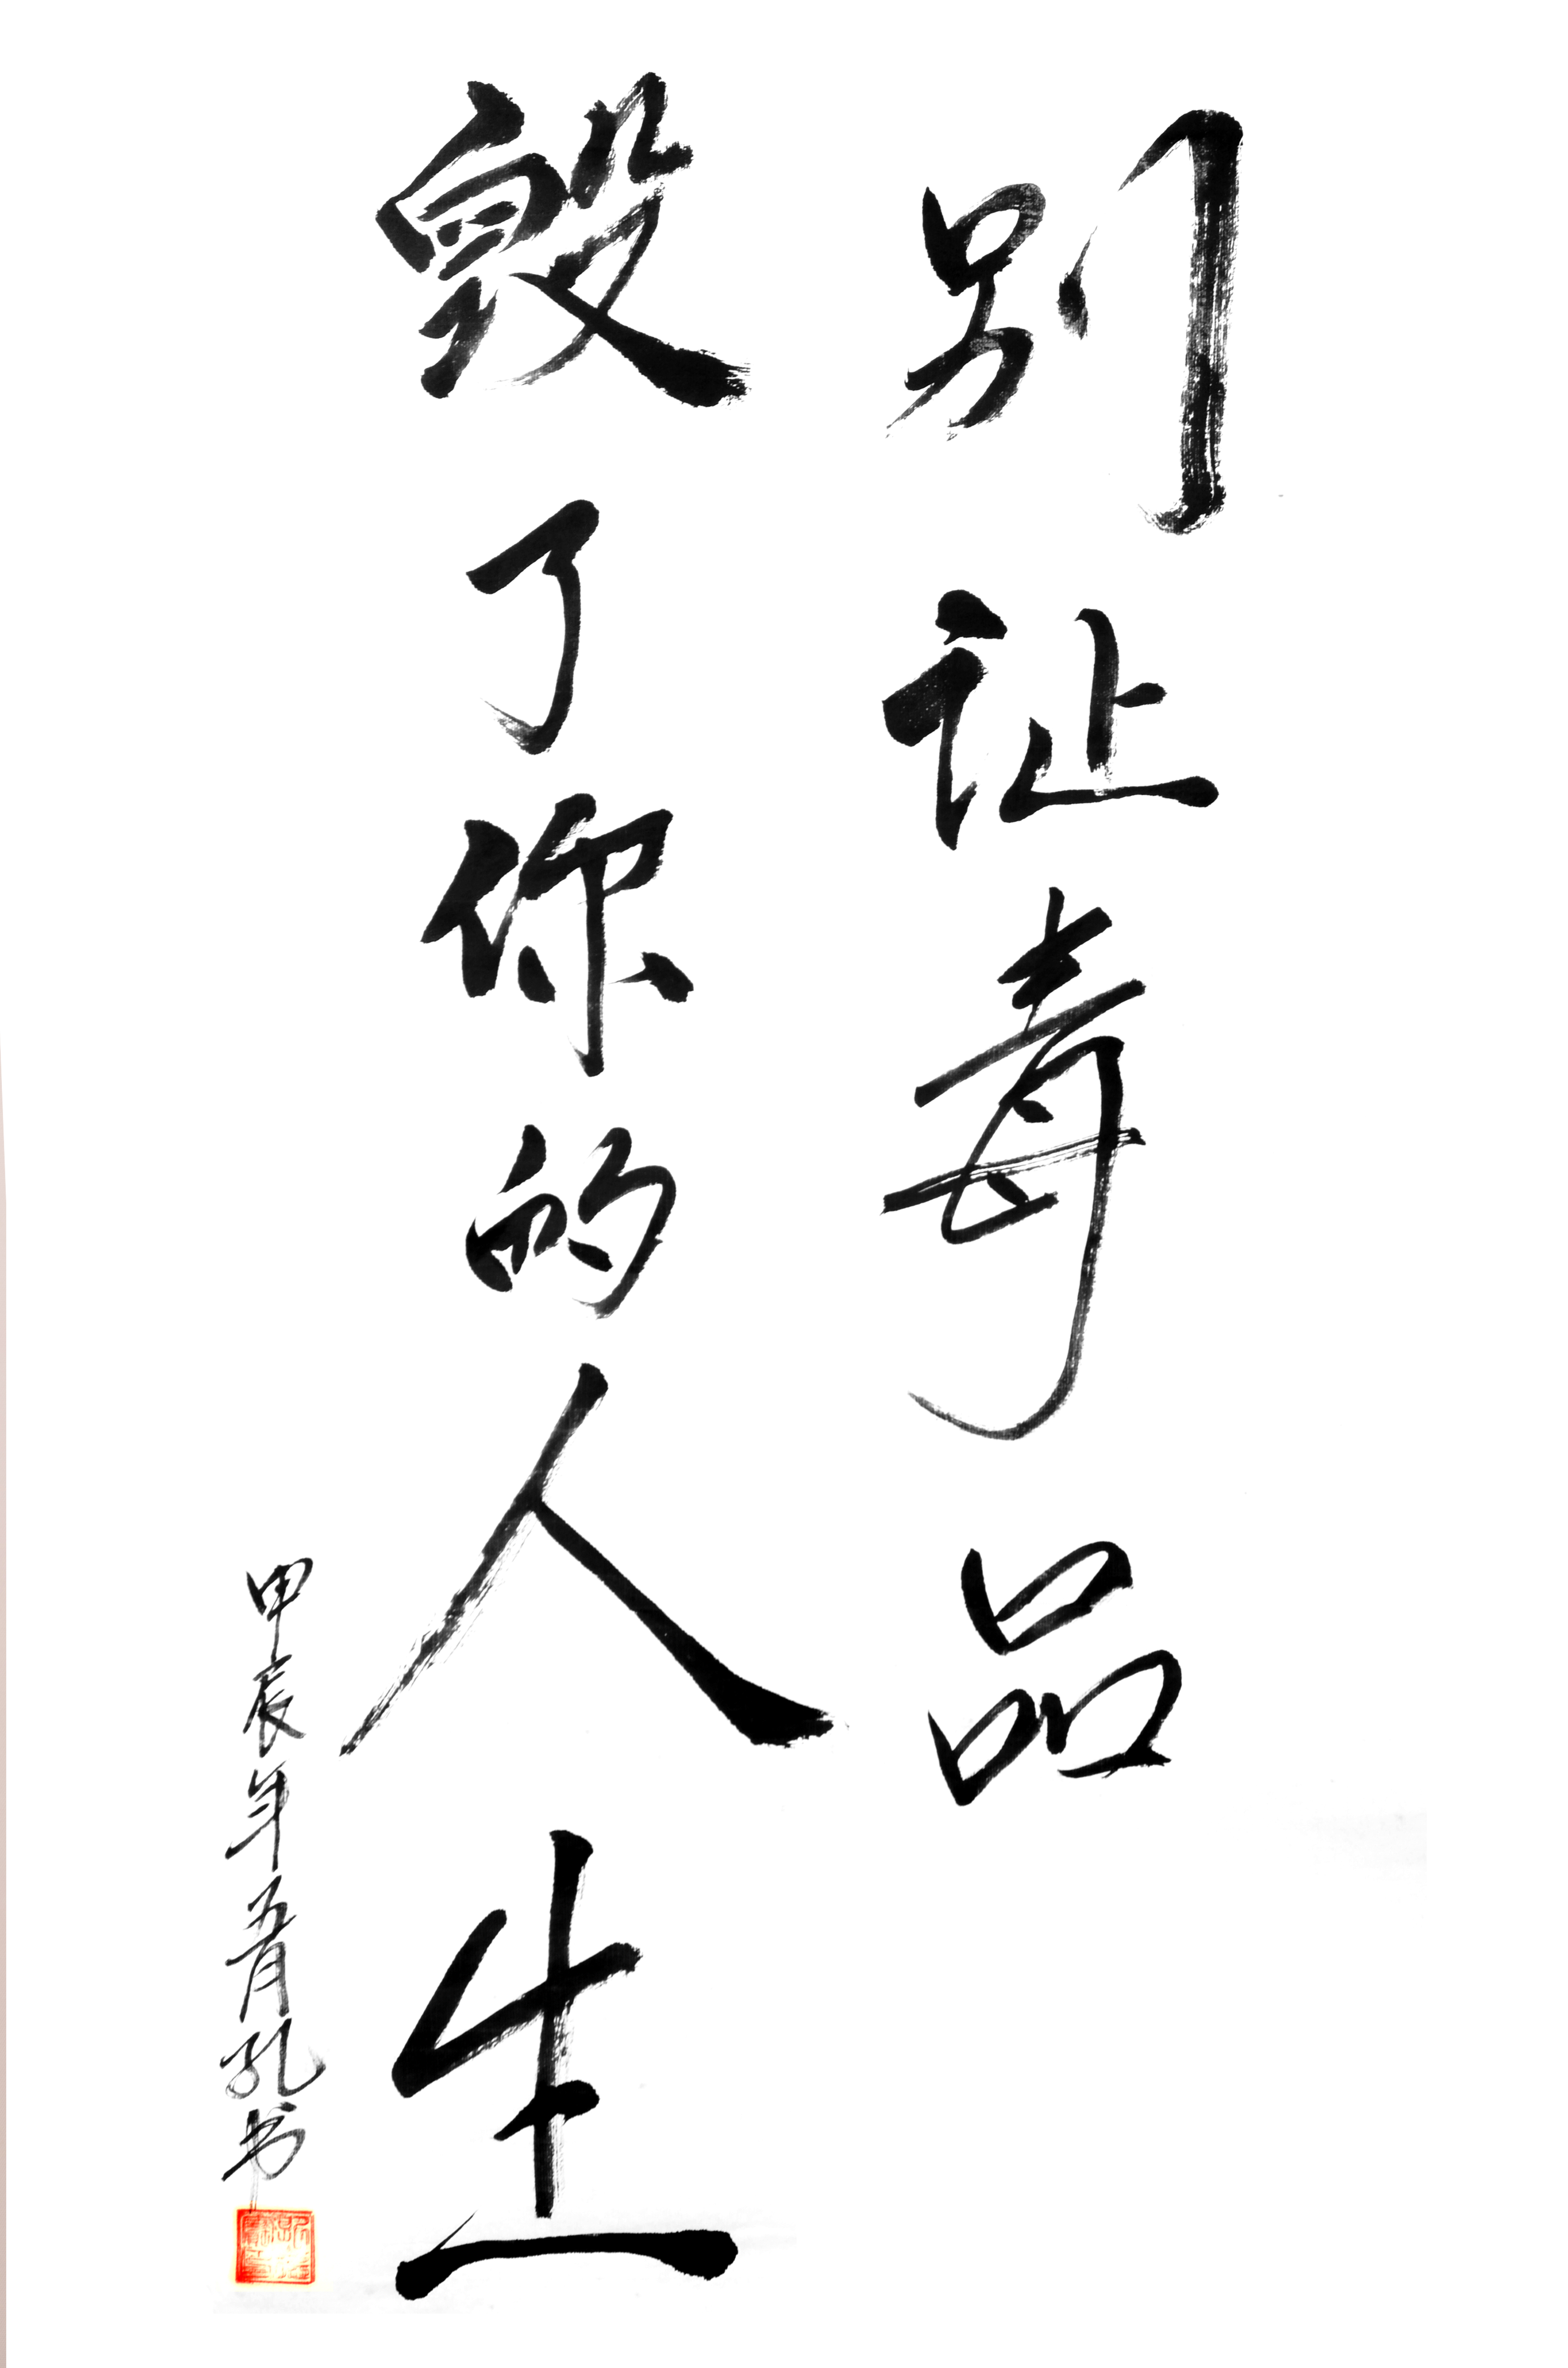 别让毒品
毁了你的人生
甲辰年五月孔书